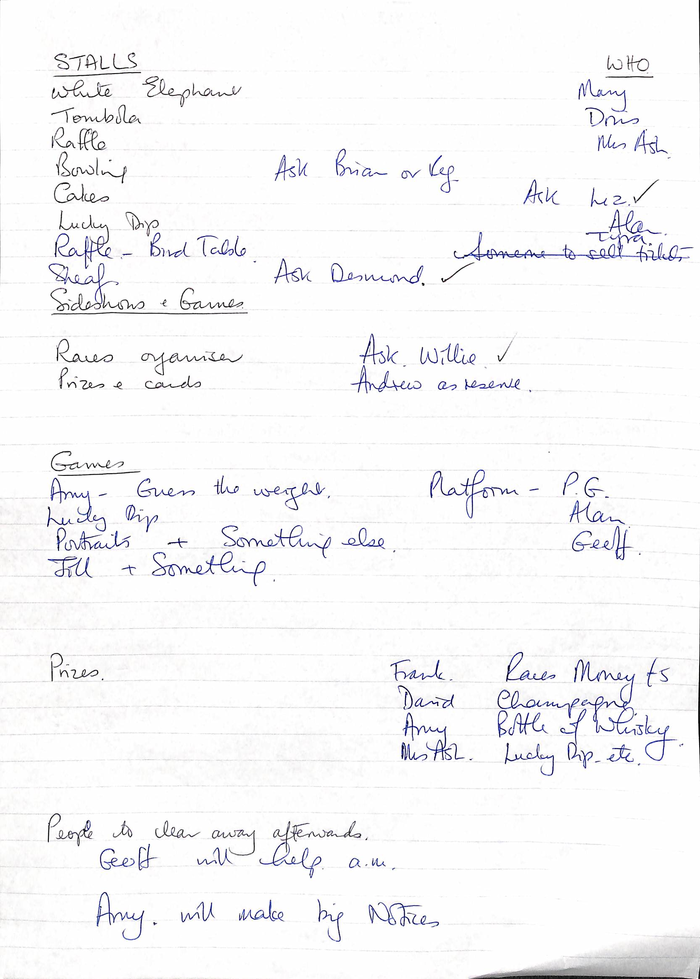 STALLS WHO
White Elephant Mary
Tombola Doris
Raffle Mrs Ash.
Bowling Ask Brian or Reg.
Cakes Ask Liz. ✓
Lucky Dip Alan
Raffle - Bird Table. Someone to sell tickets
Sheaf Ask Desmond. ✓
Sideshows & Games
Races organiser Ask Willie ✓
Prizes & cards Andrew as reserve.
Games
Amy - Guess the weight. Platform - P.G.
Lucky Dip Alan
Portraits + Something else. Geoff.
Jill + Something.
Prizes. Frank. Races Money £5
David Champagne
Amy Bottle of Whisky.
Mrs Ash. Lucky Dip. etc.
People to clear away afterwards.
Geoff will help a.m.
Amy. will make big Notices